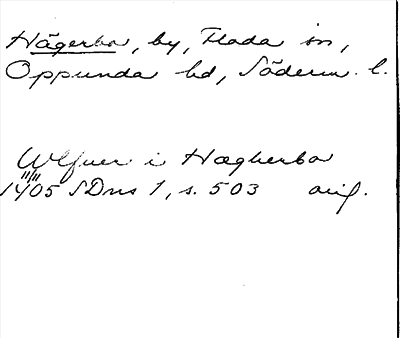 Hägerbo, by, Floda sn,
Oppunda hd, Söderm. l.
Ulfuer i Hagherbo
11/11
1405 SDns 1, s. 503 orig.